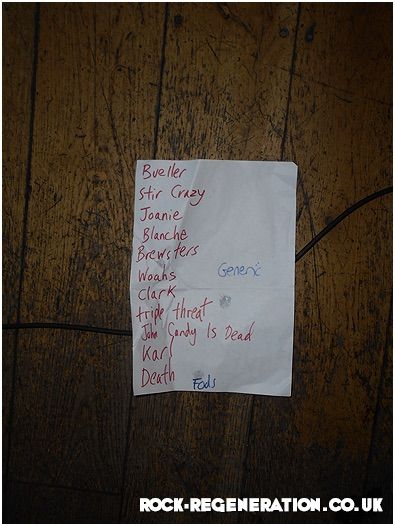 Bueller
Stir Crazy
Joanie
Blanche
Brewsters
Woahs
Generic
Clark
triple threat
John Candy Is Dead
Karl
Death
Fods
ROCK-REGENERATION.CO.UK